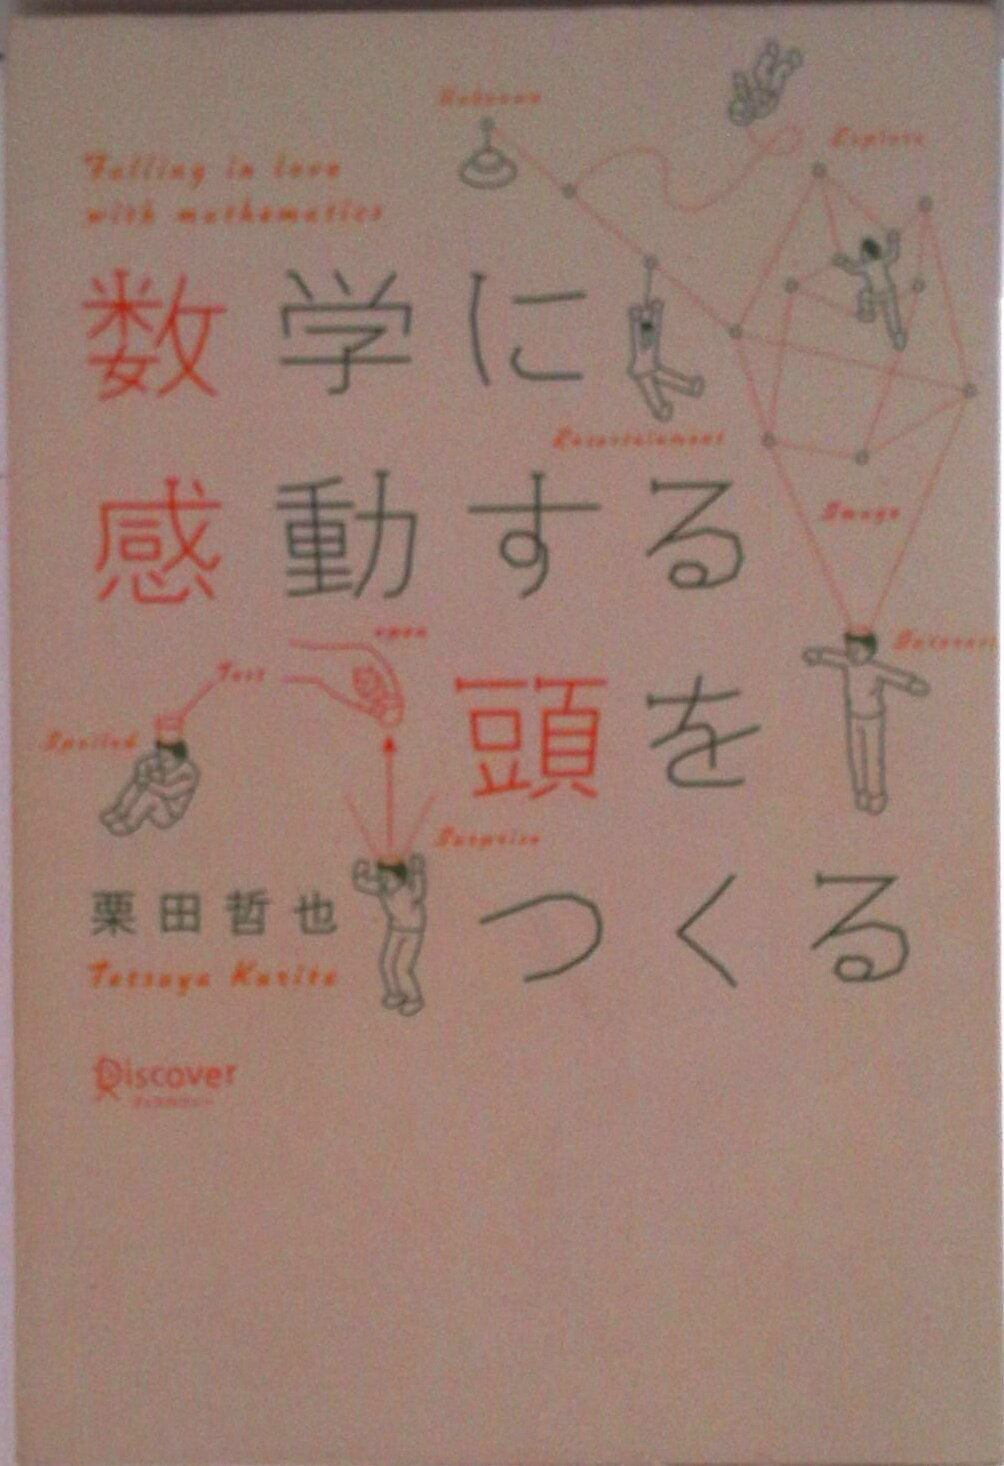 Unknown
Explore
Falling in love
with mathematics
数学に
Entertainment
感動する
Image
open
Test
Spoiled
頭を
Surprise
栗田哲也
つくる
Tetsuya Kurita
Discover
ディスカヴァー